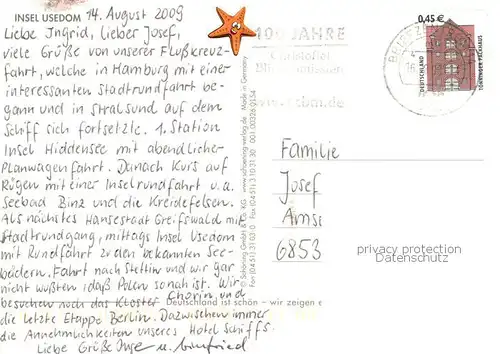 INSEL USEDOM 14. August 2009
Liebe Ingrid, lieber Josef,
viele Grüße von unserer Flußkreuz-
fahrt, welche in Hamburg mit einer
interessanten Stadtrundfahrt be-
gann und in Stralsund auf dem
Schiff sich fortsetzte. 1. Station
Insel Hiddensee mit abendlicher
Planwagenfahrt. Danach Kurs auf
Rügen mit einer Inselrundfahrt u.a.
Seebad Binz und die Kreidefelsen.
Als nächstes Hansestadt Greifswald mit
Stadtrundgang, mittags Insel Usedom
mit Rundfahrt zu den bekannten See-
bädern. Fahrt nach Stettin und wir gar
nicht wußten, daß Polen so nah ist. Wir
besuchen noch das Kloster Chorin und
die letzte Etappe Berlin. Dazwischen immer
die Annehmlichkeiten unseres Hotel Schiffs.
Liebe Grüße Inge u. Winfried
Deutschland ist schön – wir zeigen e
© Schöning GmbH & Co. KG · www.schoening-verlag.de · Made in Germany
100 JAHRE
0,45 €
DEUTSCHLAND
TÖNNINGER PACKHAUS
Familie
Josef
Amse
6853
privacy protection
Datenschutz